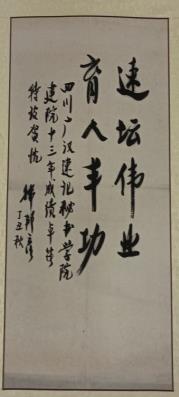 速坛伟业
育人丰功
四川广汉速记秘书学院
建院十三年成绩卓著
特致贺忱
丁丑秋